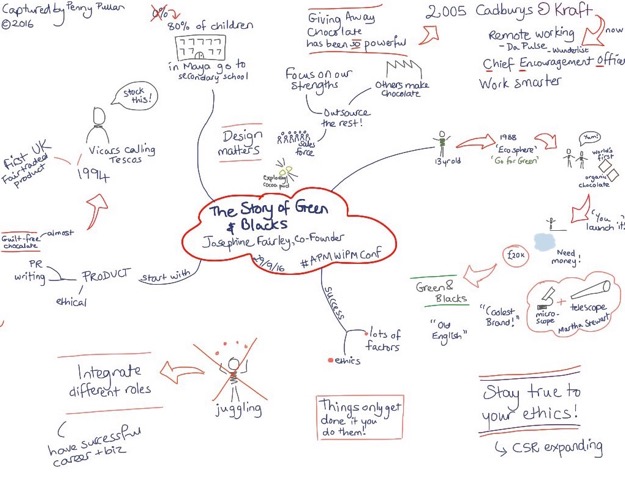 Captured by Penny Pullan
©2016
0%
80% of children
in Maya go to
secondary school
Giving Away
Chocolate
has been so powerful
2005 Cadburys
Kraft
now
Remote working
- Da Pulse
- Wunderlist
Chief Encouragement Officer
Work smarter
Focus on our
Strengths
Others make
chocolate
Outsource
the rest!
sales
force
Design
matters
exploding
cocoa pod
stock
this!
Vicars calling
Tescos
1994
first UK
Fairtraded
product
Guilt-free
chocolate
almost
PR
writing
PRODUCT
start with
ethical
The Story of Green
& Blacks
Josephine Fairley, Co-Founder
29/9/16
#APMWiPMConf
13 yr old
1988
'Ecosphere'
'Go for Green'
Yum!
world's
first
organic
chocolate
"You
launch it!
£20k
Need
money!
Green & Blacks
"Old
English"
"Coolest
Brand!"
micro-
scope
+
telescope
Martha Stewart
Success
lots of
factors
ethics
Integrate
different roles
juggling
have successful
career + biz
Things only get
done if you
do them!
Stay true to
your ethics!
CSR expanding